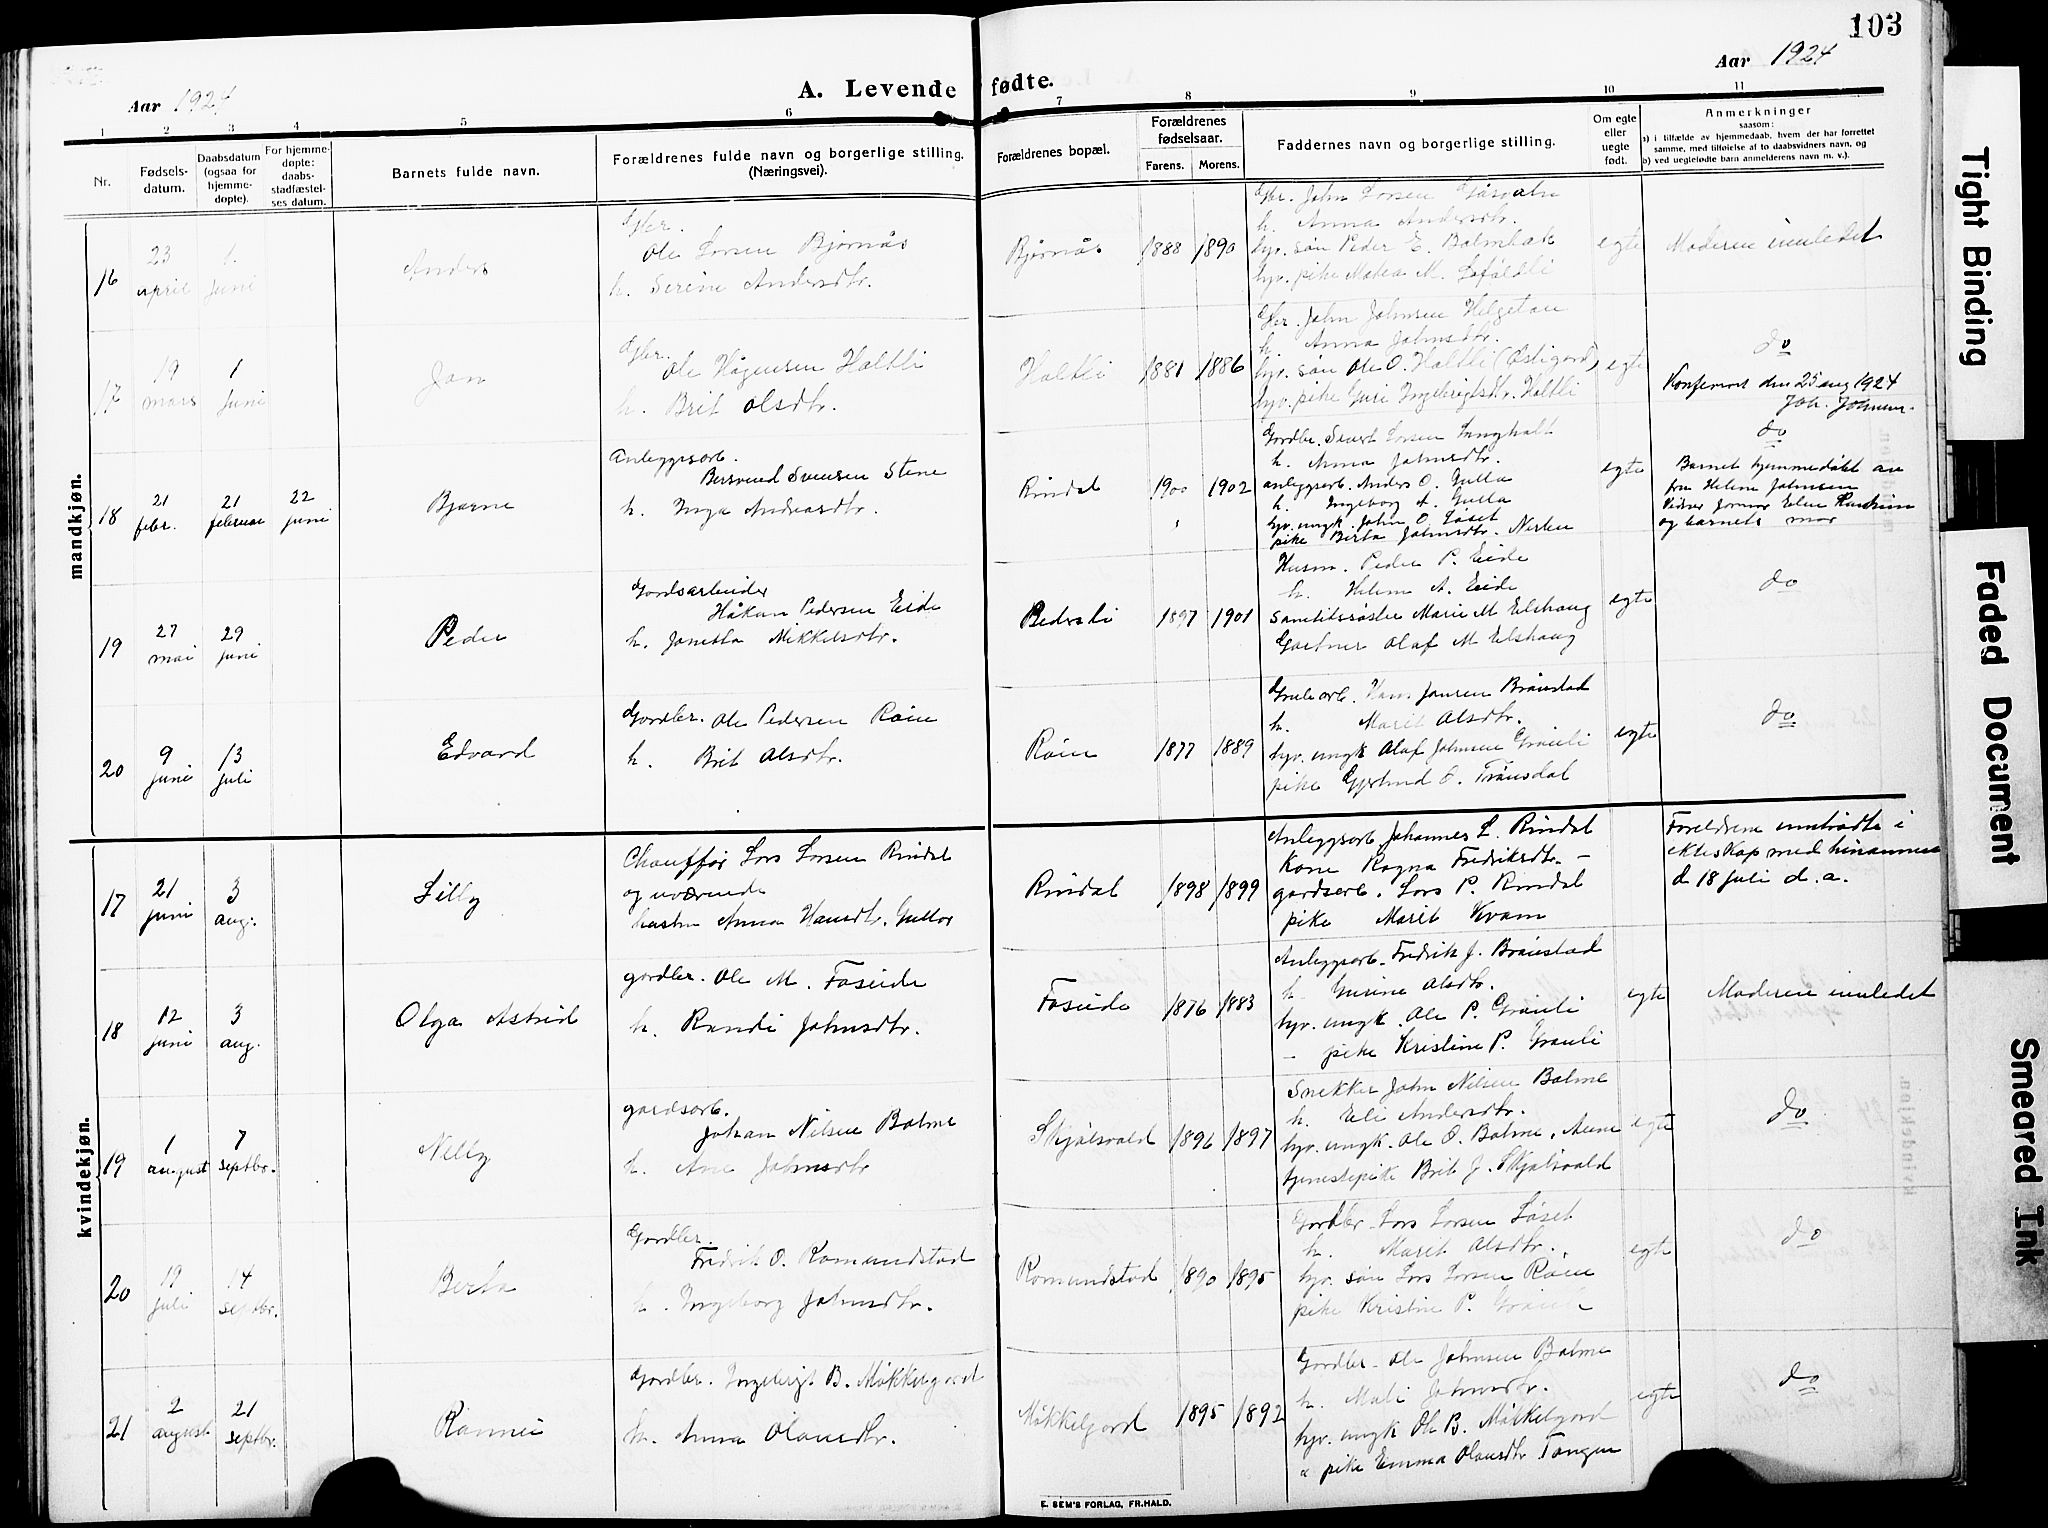 103
Aar 1924
Aar 1924
A. Levende fødte.
1 2 3 4 5 6 7 8 9 10 11
Nr.
Fødsels-
datum.
Daabsdatum
(ogsaa for
hjemme-
døpte).
For hjemme-
døpte:
daabs-
stadfæstel-
ses datum.
Barnets fulde navn.
Forældrenes fulde navn og borgerlige stilling.
(Næringsvei).
Forældrenes bopæl.
Forældrenes
fødselsaar.
Farens. Morens.
Faddernes navn og borgerlige stilling.
Om egte
eller
uegte
født.
Anmerkninger
saasom:
a) i tilfælde av hjemmedaab, hvem der har forrettet
samme, med tilføielse af to daabsvidners navn, og
b) ved uegtefødte barn anmelderens navn m. v.).
mandkjøn.
16
23
april
1.
juni
Anders
Gbr.
Ole Larsen Bjørnås
h. Serine Andersdtr.
Bjørnås
1888 1890
Gbr. John Larsen
h. Anna Andersdtr.
hjv. søn Peder E.
hjv. pike M.
egte
Moderen innledet
17
19
mars
1
juni
Jon
Gbr.
Ole Hågensen Haltli
h. Brit Olsdtr.
Haltli
1881 1886
Gbr. John Johnsen Helgetun
h. Anna Johnsdtr.
hjv. søn Ole O. Haltli (Østigard)
hjv. pike Guri Ingebrigtsdtr. Haltli
egte
do
Konferert den 25 aug 1924
Joh. Johnsen.
18
21
febr.
21
februar
22
juni
Bjarne
Anleggsarb.
Bersvend Svensen Stene
h. Inga Andreasdtr.
Rindal
1900 1902
Gardbr. Sivert Larsen
h. Anna Johnsdtr.
anleggsarb. Anders O. Gulla
h. Ingeborg A. Gulla
hjv. ungk. John O. Løset
pike Johnsdtr.
egte
do
Barnet hjemmedøbt av
fru Helene Johnsen
og barnets mor
19
27
mai
29
juni
Peder
Gardsarbeider
Håkon Pedersen Eide
h. Jonetta Mikkelsdtr.
Bedersli
1897 1901
Husm. Peder P. Eide
h. Helene A. Eide
Marie M Elshaug
Gartner Olaf M Elshaug
egte
do
20
9
juni
13
juli
Edvard
Gardbr. Ole Pedersen Røen
h. Brit Olsdtr.
Røen
1877 1889
Hans Jonsen Brønstad
h. Marit Olsdtr.
hjv. ungk Olaf Johnsen Grønli
pike Gjertrud O. Trønsdal
egte
do
kvindekjøn.
17
21
juni
3
aug.
Lilly
Chauffør Lars Larsen Rindal
og nværende
hustru Anna Hansdtr.
Rindal
1898 1899
Anleggsarb. Johannes L. Rindal
Kone Ragna Fredriksdtr. –
gardsarb. Lars P. Rindal
pike Marit Kvam
Foreldrene inntrådte i
ekteskap med hinannen
d 18 juli d. a.
18
12
juni
3
aug.
Olga Astrid
gardbr. Ole M. Faseide
h. Randi Johnsdtr.
Faseide
1876 1883
Anleggsarb. Fredrik J. Brønstad
h. Gurine Olsdtr.
hjv. ungk. Ole P. Grønli
– pike Kristine P. Grønli
egte
Moderen innledet
19
1
august
7
septbr.
Nelly
gardsarb.
Johan Nilsen Bolme
h. Ane Johnsdtr
Skjølsvold
1896 1897
Snekker John Nilsen Bolme
h. Eli Andersdtr.
hjv. ungk. Ole O. Bolme, Aune
tjenestepike Brit J. Skjølsvold
egte
do
20
19
juli
14
septbr.
Berta
Gardbr.
Fredrik O. Romundstad
h. Ingeborg Johnsdtr.
Romundstad
1890 1895
Gardbr. Lars Larsen Løset
h. Marit Olsdtr.
hjv. søn Lars Larsen Røen
pike Kristine P. Grønli
egte
do
21
2
august
21
septbr.
Rannei
Gardbr. Ingebrigt B. Møkkelgard
h. Anna Olausdtr.
Møkkelgard
1895 1892
Gardbr. Ole Johnsen Bolme
h. Mali Johnsdtr.
hjv. ungk Ole B. Møkkelgard
" pike Emma Olausdtr Tangen
egte
do
E. SEM'S FORLAG, FR.HALD.
Tight Binding
Faded Document
Smeared Ink